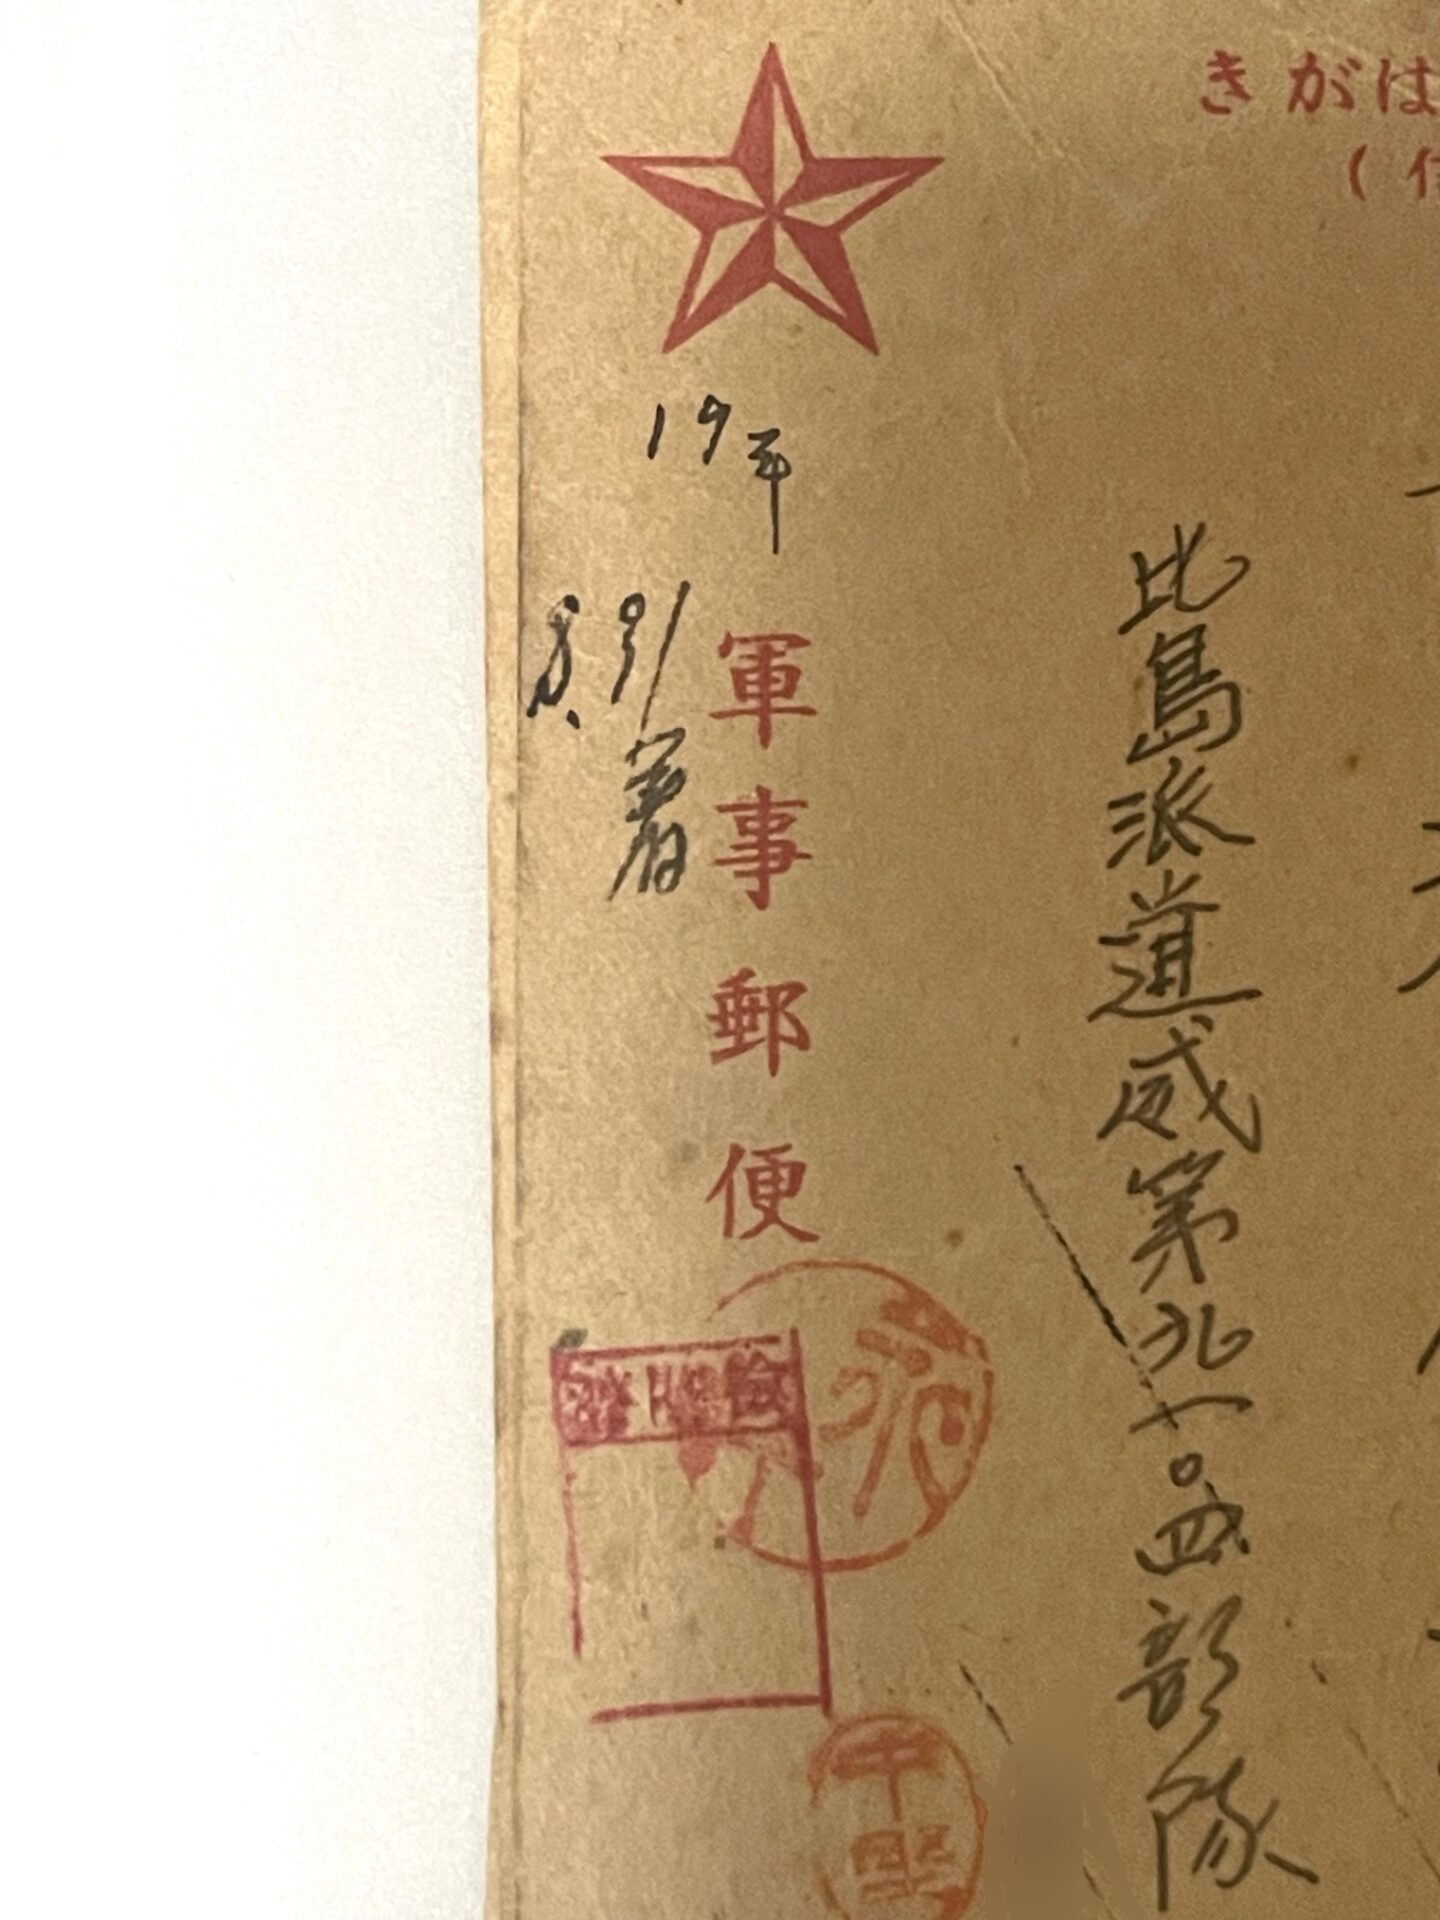 きがは
(信
比島派遣威第九一〇四部隊
19年
8.31着
軍事郵便
検閲済
中野